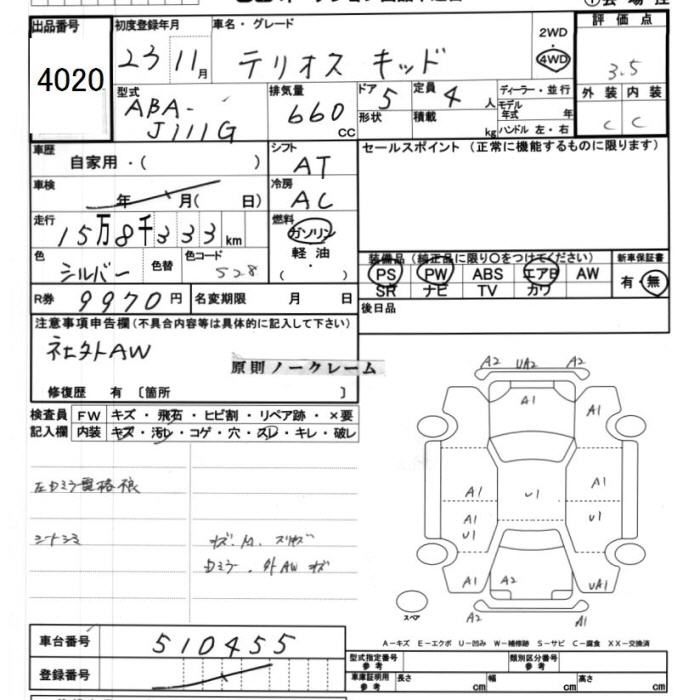 出品番号
4020
初度登録年月
23 11月
車名・グレード
テリオス キッド
2WD
4WD
評価点
3.5
外装 内装
C C
型式
ABA-
J111G
排気量
660 CC
ドア 5
形状
定員 4 人
積載 kg
ディーラー・並行
モデル年式 年
ハンドル 左・右
車歴
自家用・( )
シフト
AT
セールスポイント(正常に機能するものに限ります)
車検
年 月( 日)
冷房
AC
走行
15万8千333km
燃料
ガソリン
軽油
・
( )
色
シルバー
色替
色コード
S28
装備品(純正品に限り○をつけてください)
PS PW ABS エアB AW
SR ナビ TV カワ
新車保証書
有・無
R券 9970円
名変期限 月 日
後日品
注意事項申告欄(不具合内容等は具体的に記入して下さい)
社外AW
原則ノークレーム
修復歴 有〔箇所 〕
検査員 FW キズ・飛石・ヒビ割・リペア跡・×要
記入欄 内装 キズ・汚レ・コゲ・穴・スレ・キレ・破レ
シートシミ
A2 UA2 A2
A1
A1
A1 U1 A1
A1 U1
U1
A1 A2 UA1
スペア
A2 A1
A-キズ E-エクボ U-凹み W-補修跡 S-サビ C-腐食 XX-交換済
車台番号
510455
登録番号
型式指定番号
参考
類別区分番号
参考
車庫証明用
参考
長さ cm
幅 cm
高さ cm